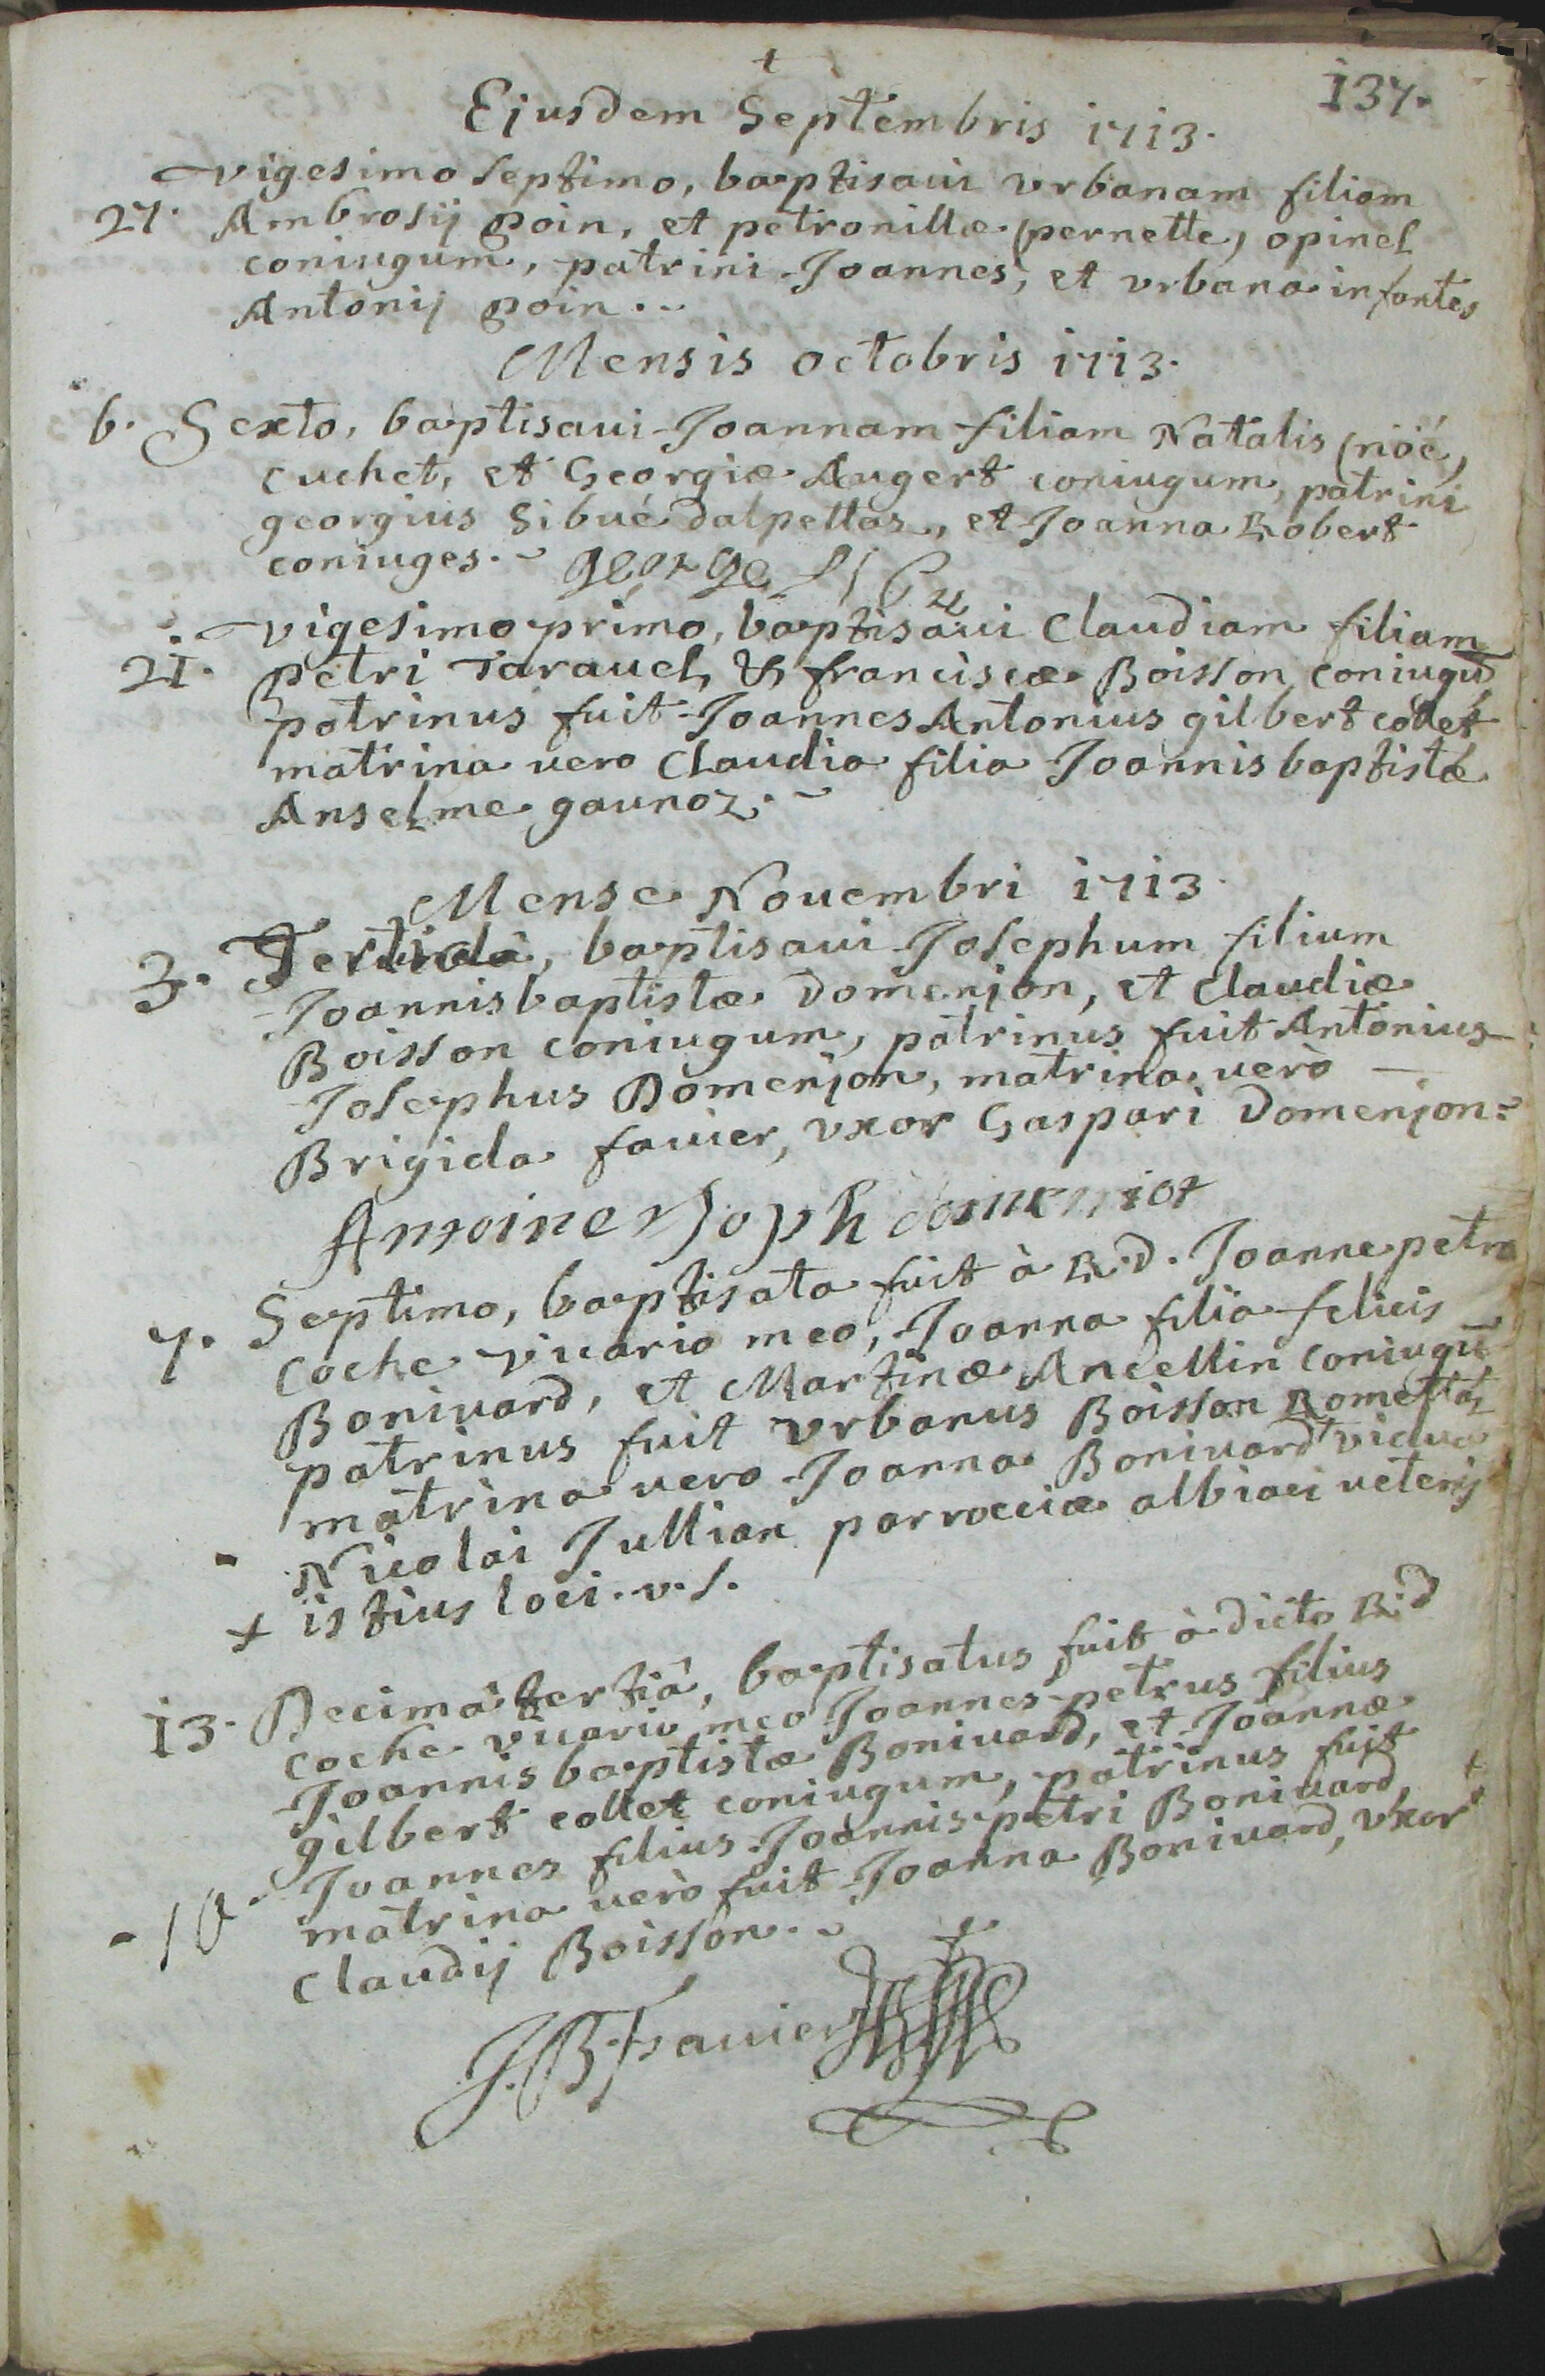 137.
Ejusdem Septembris 1713.
vigesimo septimo, baptisaui vrbanam filiam
27. Ambrosij goin, et petronillæ (pernette) opinel
coniugum, patrini Joannes, et vrbana infantes
Antonij goin.
Mensis octobris 1713.
6. Sexto, baptisaui Joannam filiam Natalis (nöé)
cuchet, et Georgiæ Augert coniugum, patrini
georgius Sibué dalpettaz, et Joanna Robert
coniuges. george Sibu
vigesimo primo, baptisaui Claudiam filiam
21. petri Tarauel, & franciscæ Boisson coniugū
patrinus fuit Joannes Antonius gilbert collet
matrina vero Claudia filia Joannis baptistæ
Anselme gaunoz.
Mense Nouembri 1713.
3. baptisaui Josephum filium
Joannisbaptistæ Domenjon, et Claudiæ
Boisson coniugum, patrinus fuit Antonius
Josephus Domenjon, matrina verò
Brigida fauier, vxor Gaspari Domenjon.
Antoine Joseph
7. Septimo, baptisata fuit à R.D. Joanne petro
Coche vicario meo, Joanna filia felicis
Boniuard, et Martinæ Ancellin coniugū
patrinus fuit vrbanus Boisson Romettaz
matrina vero Joanna Boniuard vidua
Nicolai Jullian parrocciæ albiaci veteris
+ istius loci. v. s.
13. Decimâ tertiâ, baptisatus fuit à dicto R.D
Coche vicario meo Joannes petrus filius
Joannis baptistæ Boniuard, et Joannæ
gilbert collet coniugum, patrinus fuit
Joannes filius Joannis petri Boniuard,
matrina verò fuit Joanna Boniuard, vxor
Claudij Boisson.
J. B. Fauier